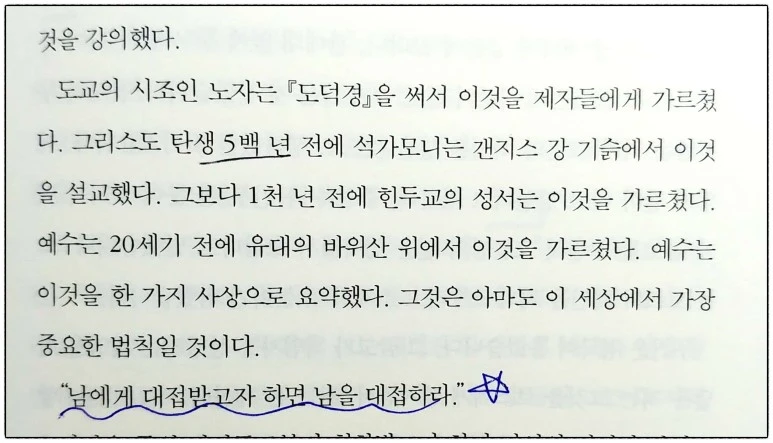 것을 강의했다.
도교의 시조인 노자는 『도덕경』을 써서 이것을 제자들에게 가르쳤
다. 그리스도 탄생 5백 년 전에 석가모니는 갠지스 강 기슭에서 이것
을 설교했다. 그보다 1천 년 전에 힌두교의 성서는 이것을 가르쳤다.
예수는 20세기 전에 유대의 바위산 위에서 이것을 가르쳤다. 예수는
이것을 한 가지 사상으로 요약했다. 그것은 아마도 이 세상에서 가장
중요한 법칙일 것이다.
“남에게 대접받고자 하면 남을 대접하라.”